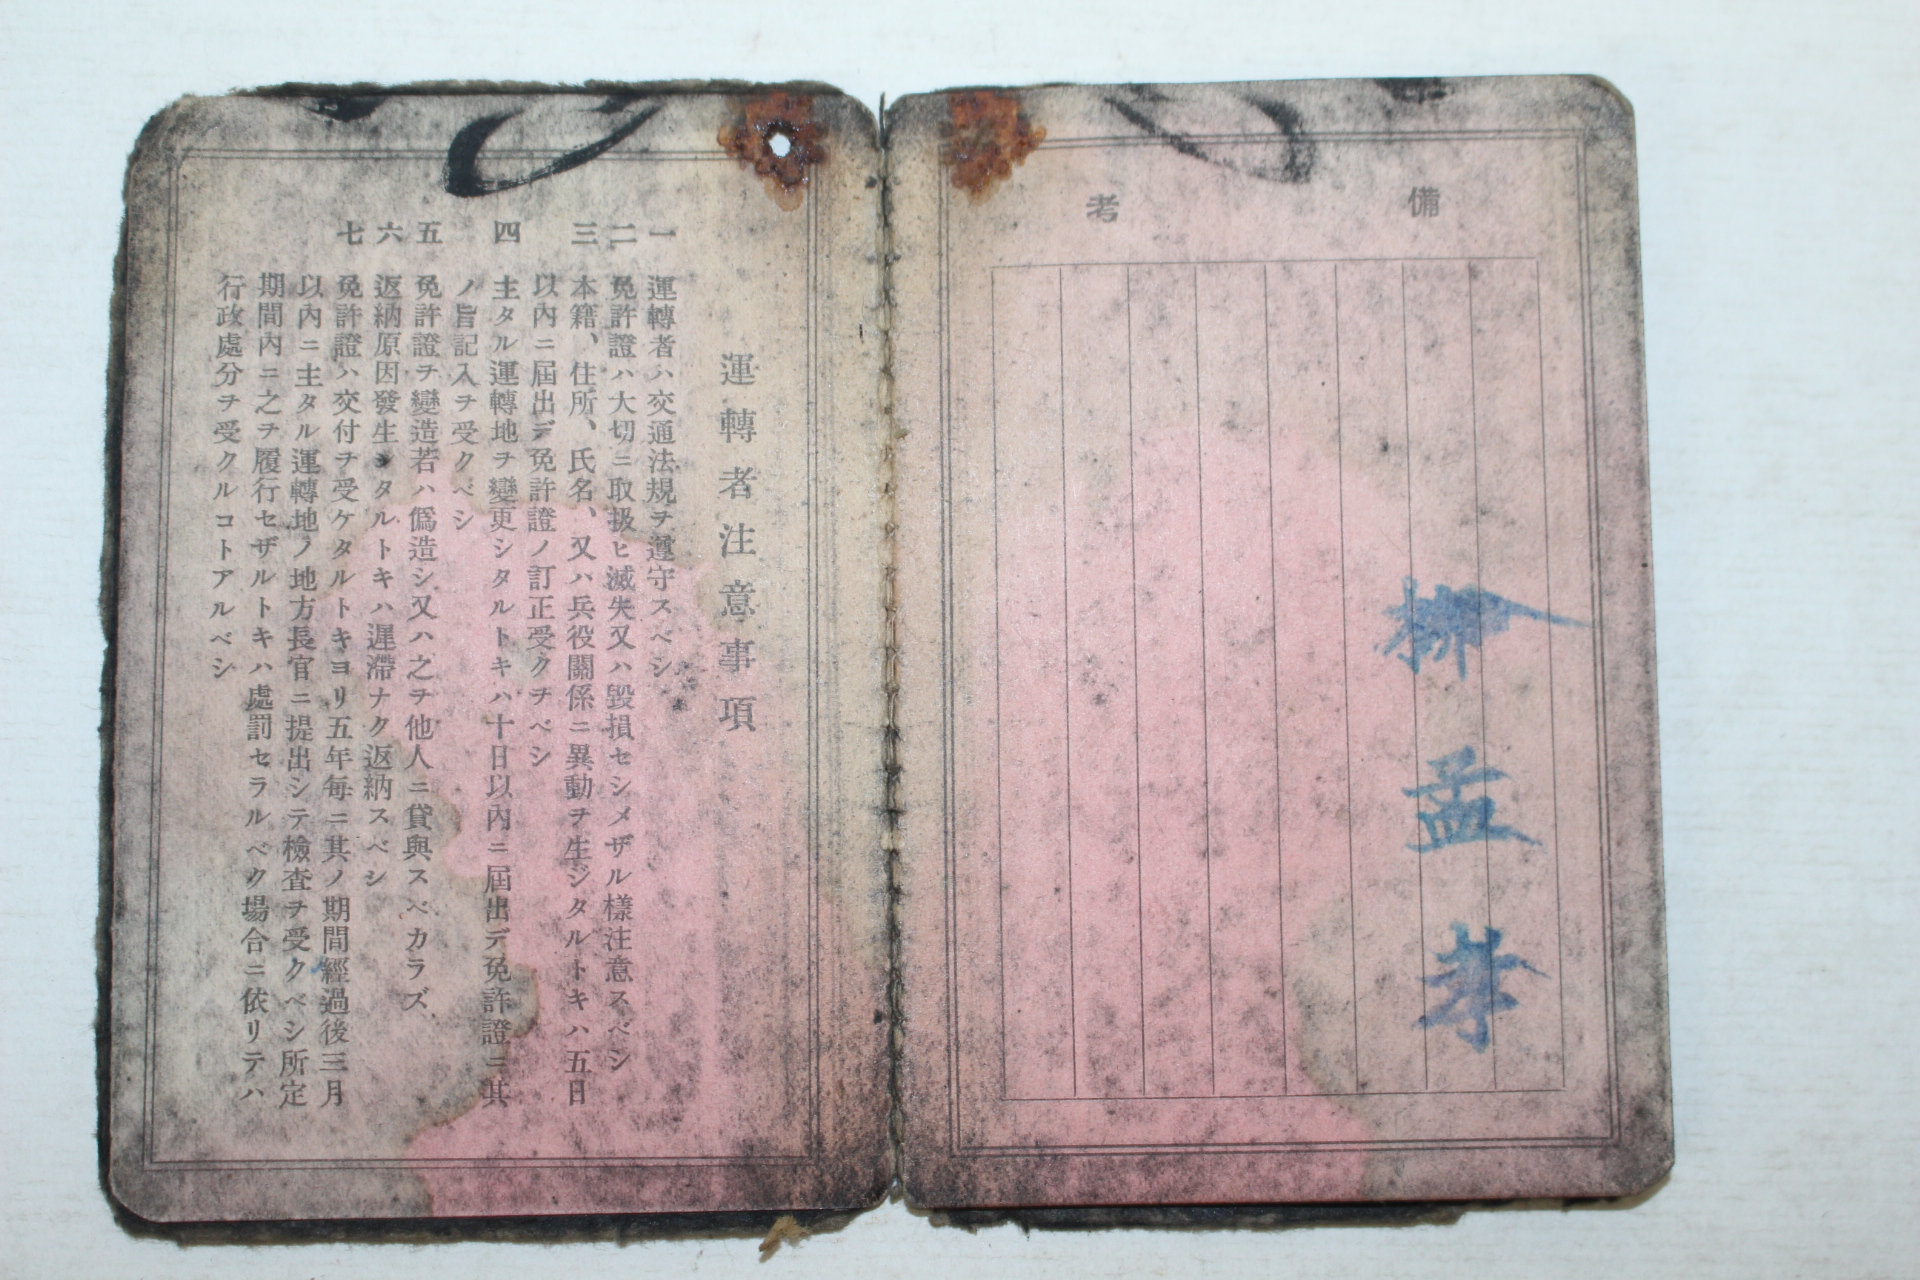 備考
柳孟孝
運轉者注意事項
一 運轉者ハ交通法規ヲ遵守スベシ
二 免許證ハ大切ニ取扱ヒ滅失又ハ毀損セシメザル樣注意スベシ
三 本籍、住所、氏名、又ハ兵役關係ニ異動ヲ生ジタルトキハ五日
以內ニ屆出デ免許證ノ訂正受クヲベシ
四 主タル運轉地ヲ變更シタルトキハ十日以內ニ屆出デ免許證ニ其
ノ旨記入ヲ受クベシ
五 免許證ヲ變造若ハ僞造シ又ハ之ヲ他人ニ貸與スベカラズ
六 返納原因發生シタルトキハ遲滯ナク返納スベシ
七 免許證ハ交付ヲ受ケタルトキヨリ五年每ニ其ノ期間經過後三月
以內ニ主タル運轉地ノ地方長官ニ提出シテ檢査ヲ受クベシ所定
期間內ニ之ヲ履行セザルトキハ處罰セラルベク場合ニ依リテハ
行政處分ヲ受クルコトアルベシ